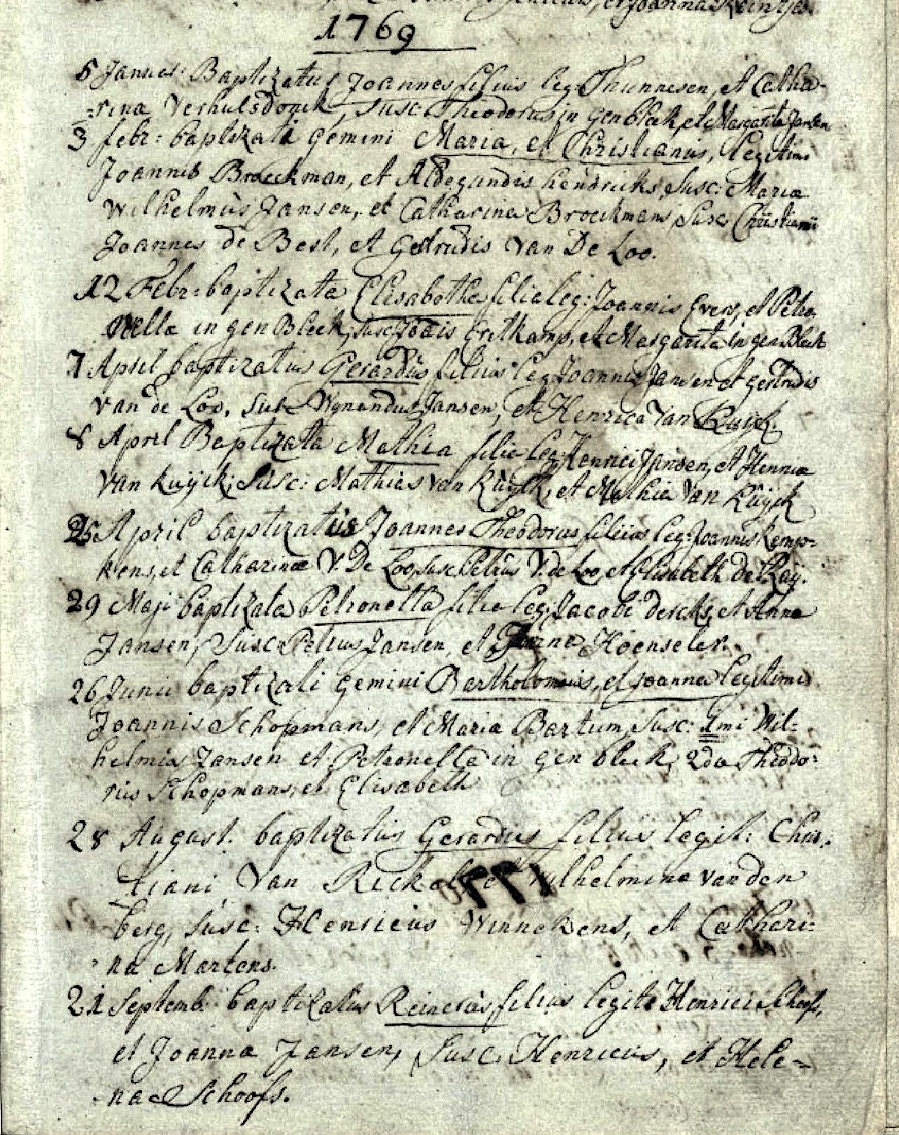 et Joanna
1769
5 Januar: Baptizatus Joannes filius leg: Thunnesen, et Catha-
-rina Verhulsdonck, susc: Theodorus in gen bleek et Margarita Jansen
3 febr: baptizati gemini Maria, et Christianus, legitimi
Joannis Broeckman, et Aldegundis hendricks, susc: Maria
Wilhelmus Jansen, et Catharina Broeckmans, Susc Christiani
Joannes de Best, et gertrudis Van De Loo.
12 Febr: baptizata Elisabetha filia leg: Joannis Evers, et Petro
Nella in gen Bleek, susc: et Margarita in gen Bleek
7 April baptizatus Gerardus filius leg Joannis Jansen et gertrudis
van de Loo, Sus Wynandus Jansen, et Henrica Van Kuyck.
8 April Baptizata Mathia filia leg: Henrici Jansen, et Henrica
Van kuijck: Susc: Mathias van Kuyck, et Mathia Van Kuijck
25 April baptizatus Joannes Theodorus filius leg: Joannis kemp-
kens, et Catharinæ V. De Loo, susc Petrus V. de Loo et Elisabeth de Raij.
29 Maji baptizata Petronella filia leg: Jacobi dercks, et Anna
Jansen, Susc Petrus Jansen, et Hoenselar.
26 Junii baptizati gemini Bartholomeus, et Joanna legitimi
Joannis Schopmans, et Maria Bartum, Susc: 1mi Wil-
helmus Jansen et Petronella in gen bleek, 2da Theodo-
rus Schopmans, et Elisabeth
28 August. baptizatus Gerardus filius legit: Chris-
tiani Van Wilhelmina van den
berg, susc: Henricus Winnekens, et Cathari-
na Martens.
21 Septemb: baptizatus Reinerus filius legit: Henrici Schoofs,
et Joanna Jansen, Susc: Henricus, et Hele-
na Schoofs.